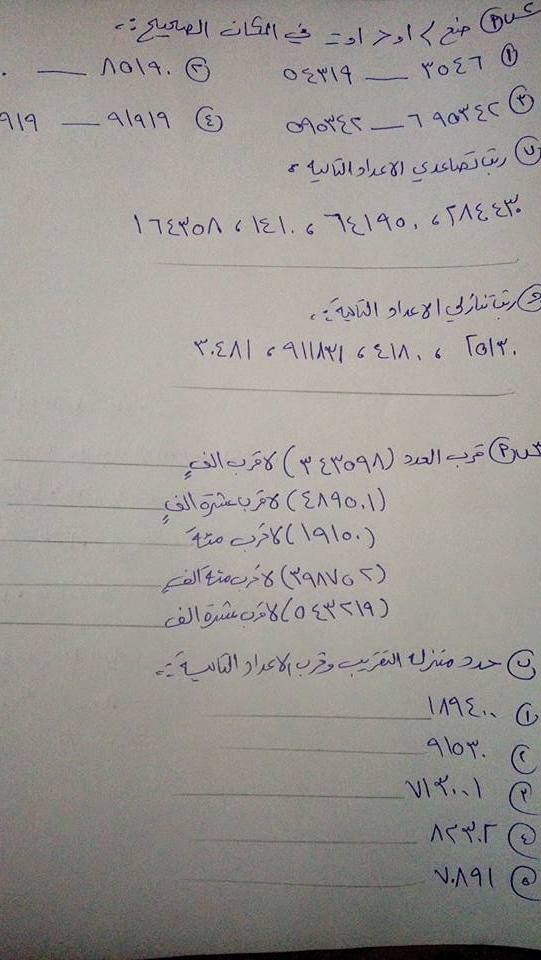 س٢ (P ضع > او < او = في المكان الصحيح :-
(١ ٣٥٤٦ ___ ٥٤٣١٩ (٢ ٨٥١٩٠ ___
(٣ ٦٩٥٣٤٢ ___ ٥٩٥٣٤٢ (٤ ٩١٩١٩ ___ ٩١٩
(ب رتب تصاعدي الاعداد التالية :
٢٨٤٤٣٠ ، ٦٤١٩٥٠ ، ١٤١٠ ، ١٦٤٣٥٨
رتب تنازلي الاعداد التالية :-
٢٥١٣٠ ، ٤١٨٠ ، ٩١١٨٣١ ، ٣٠٤٨١
س٣ (P قرب العدد (٣٤٣٥٩٨) لاقرب الف
(٤٨٩٥٠١) لاقرب عشرة الف
(١٩١٥٠) لاقرب مئة
(٣٩٨٧٥٢) لاقرب مئة الف
(٥٤٣٢١٩) لاقرب عشرة الف
(ب حدد منزلة التقريب وقرب الاعداد التالية :-
(١ ١٨٩٤٠٠
(٢ ٩١٥٣٠
(٣ ٧١٣٠٠١
(٤ ٨٢٣٠٢
(٥ ٧٠٨٩١